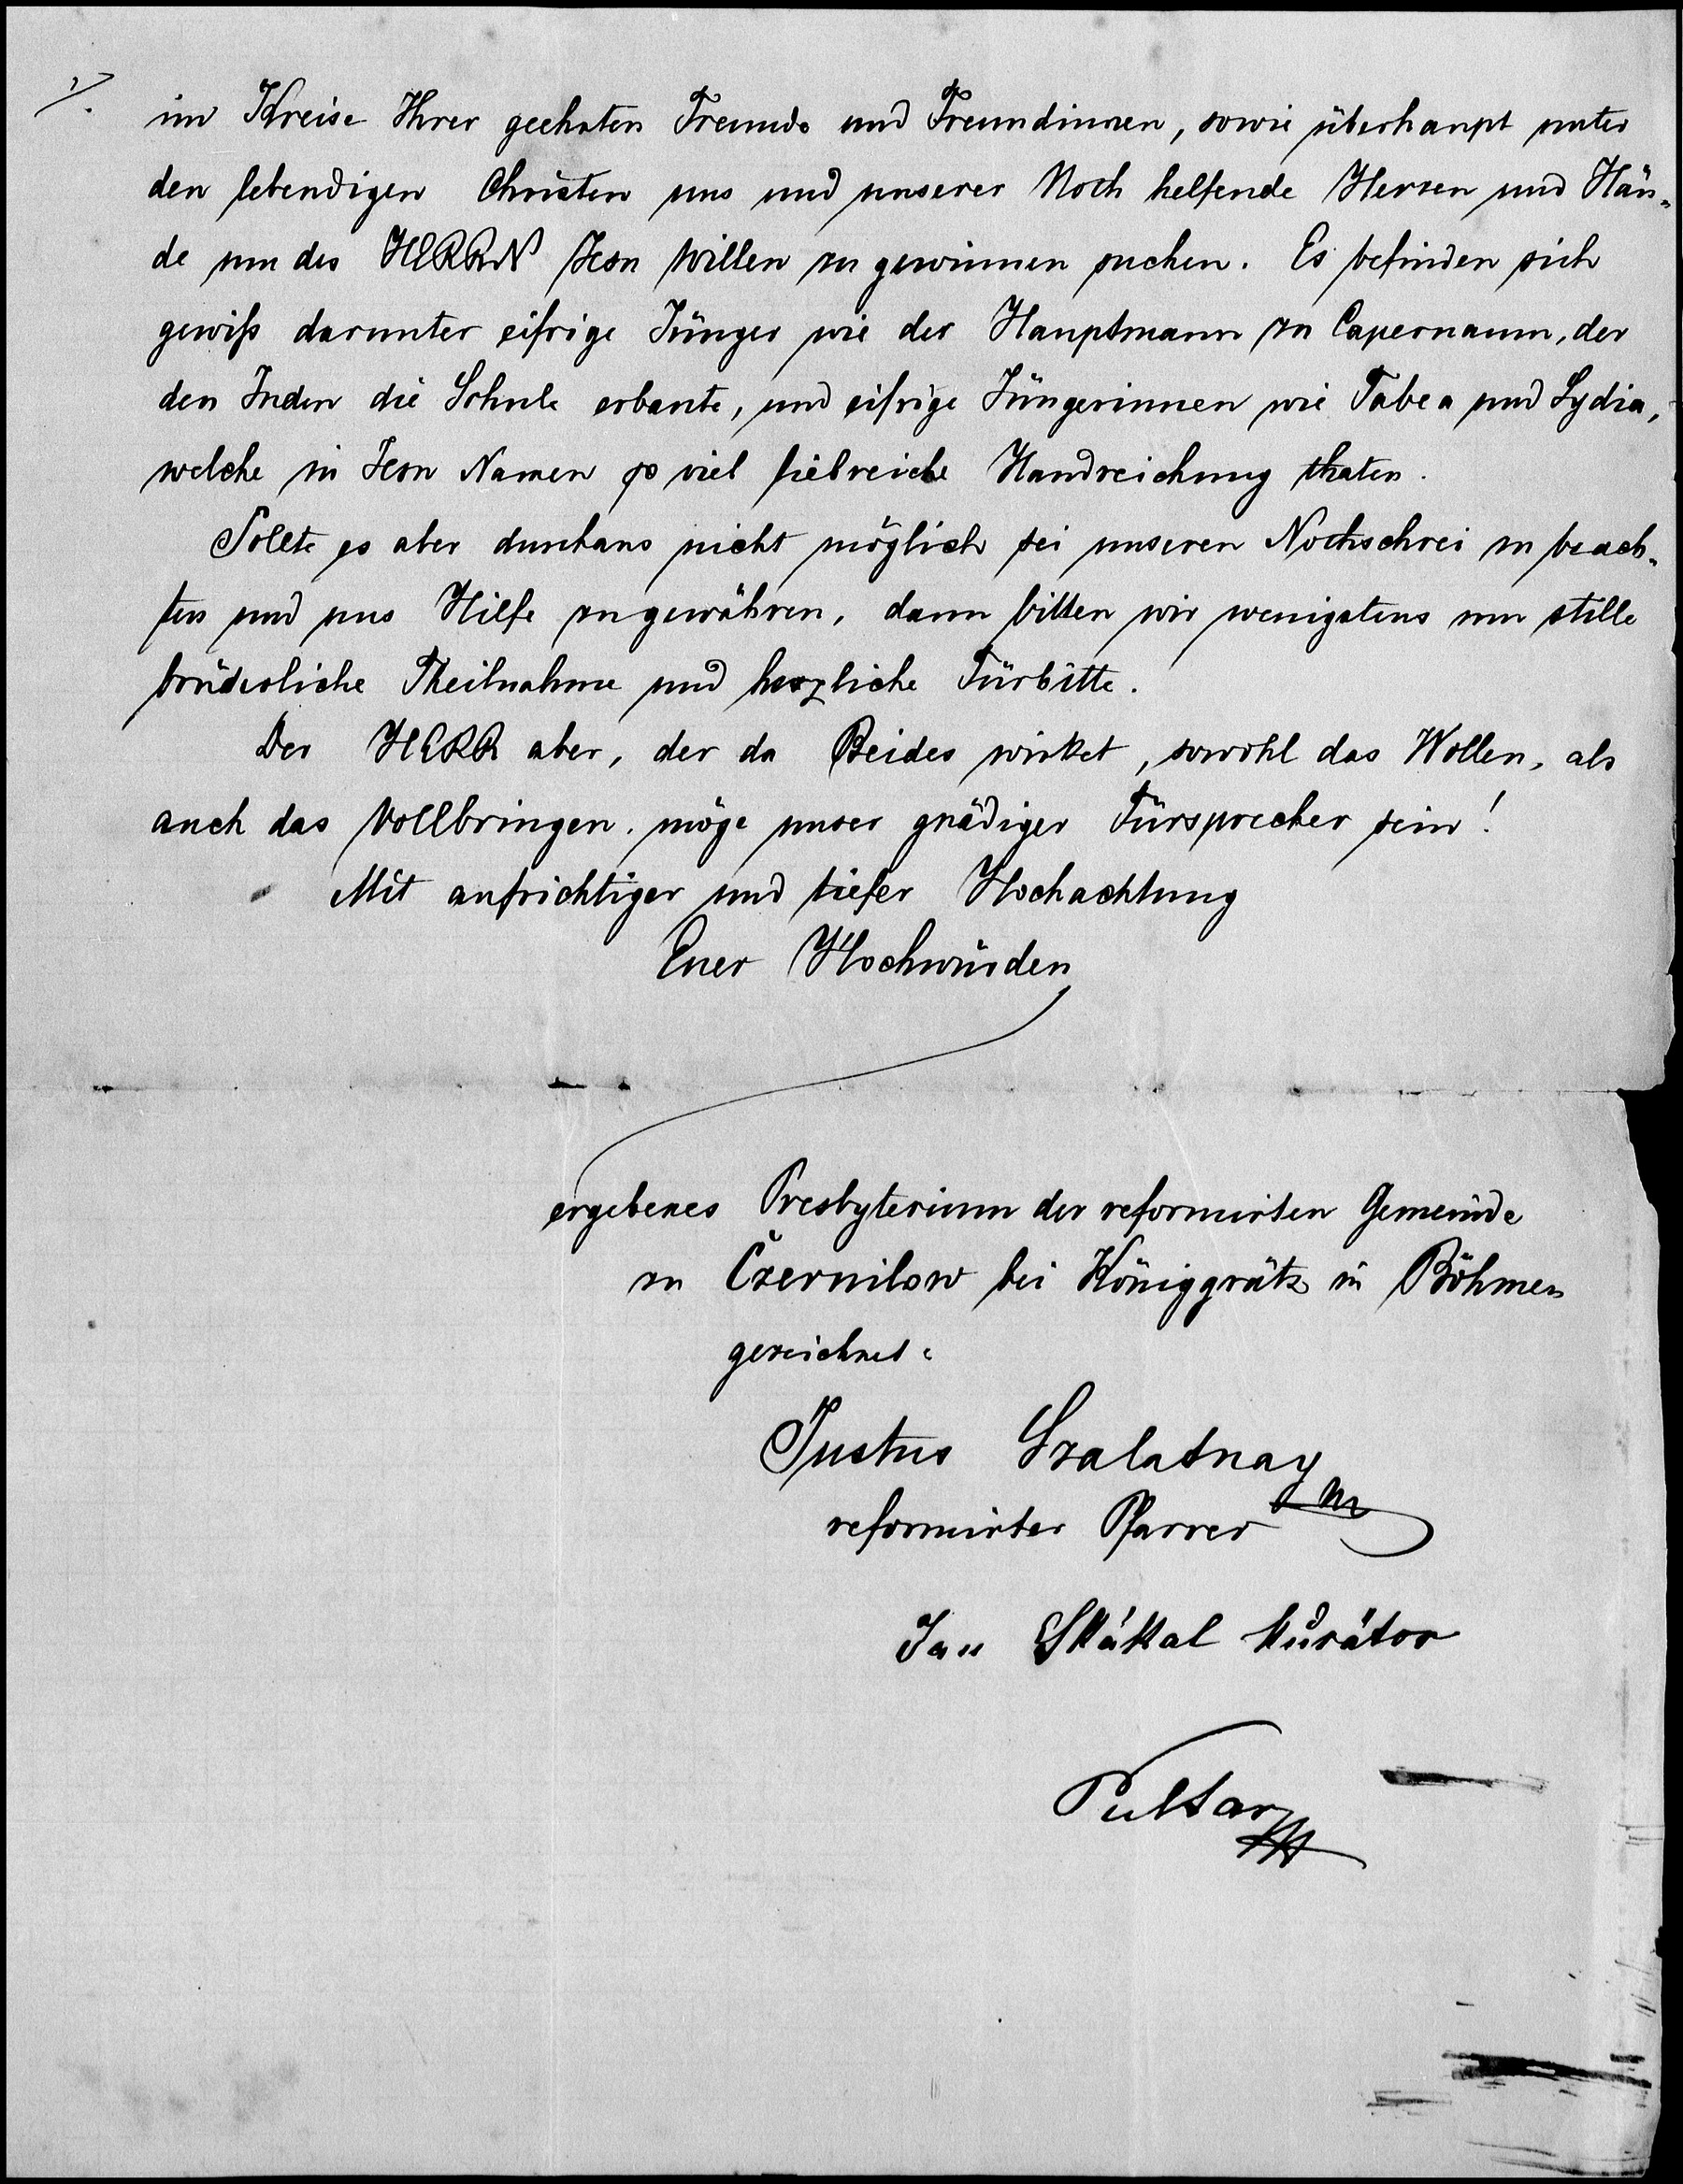 ⁒ im Kreise Ihrer geehrten Freunde und Freundinnen, sowie überhaupt unter
den lebendigen Christen uns und unserer Noth helfende Herzen und Hän-
de um des HERRN Jesu willen zu gewinnen suchen. Es befinden sich
gewiß darunter eifrige Jünger wie der Hauptmann zu Capernaum, der
den Juden die Schule erbaute, und eifrige Jüngerinnen wie Tabea und Lydia,
welche in Jesu Namen so viel liebreiche Handreichung thaten.
Sollte es aber durchaus nicht möglich sei unseren Nothschrei zu beach-
ten und uns Hilfe zu gewähren, dann bitten wir wenigstens um stille
brüderliche Theilnahme und herzliche Fürbitte.
Der HERR aber, der da Beides wirket, sowohl das Wollen, als
auch das Vollbringen, möge unser gnädiger Fürsprecher sein!
Mit aufrichtiger und tiefer Hochachtung
Euer Hochwürden
ergebenes Presbyterium der reformirten Gemeinde
zu Černilow bei Königgrätz in Böhmen
gezeichnet:
Justus Szalatnay
reformirter Pfarrer
Jan Skákal kurátor
Pultar